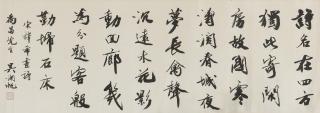 詩名在四方
獨此寄閒
房故國寒
濤闊春城夜
夢長禽聲
沉遠木花影
動回廊幾
為分題客殷
勤掃石床
宋釋希晝詩
尚昌先生 吳湖帆